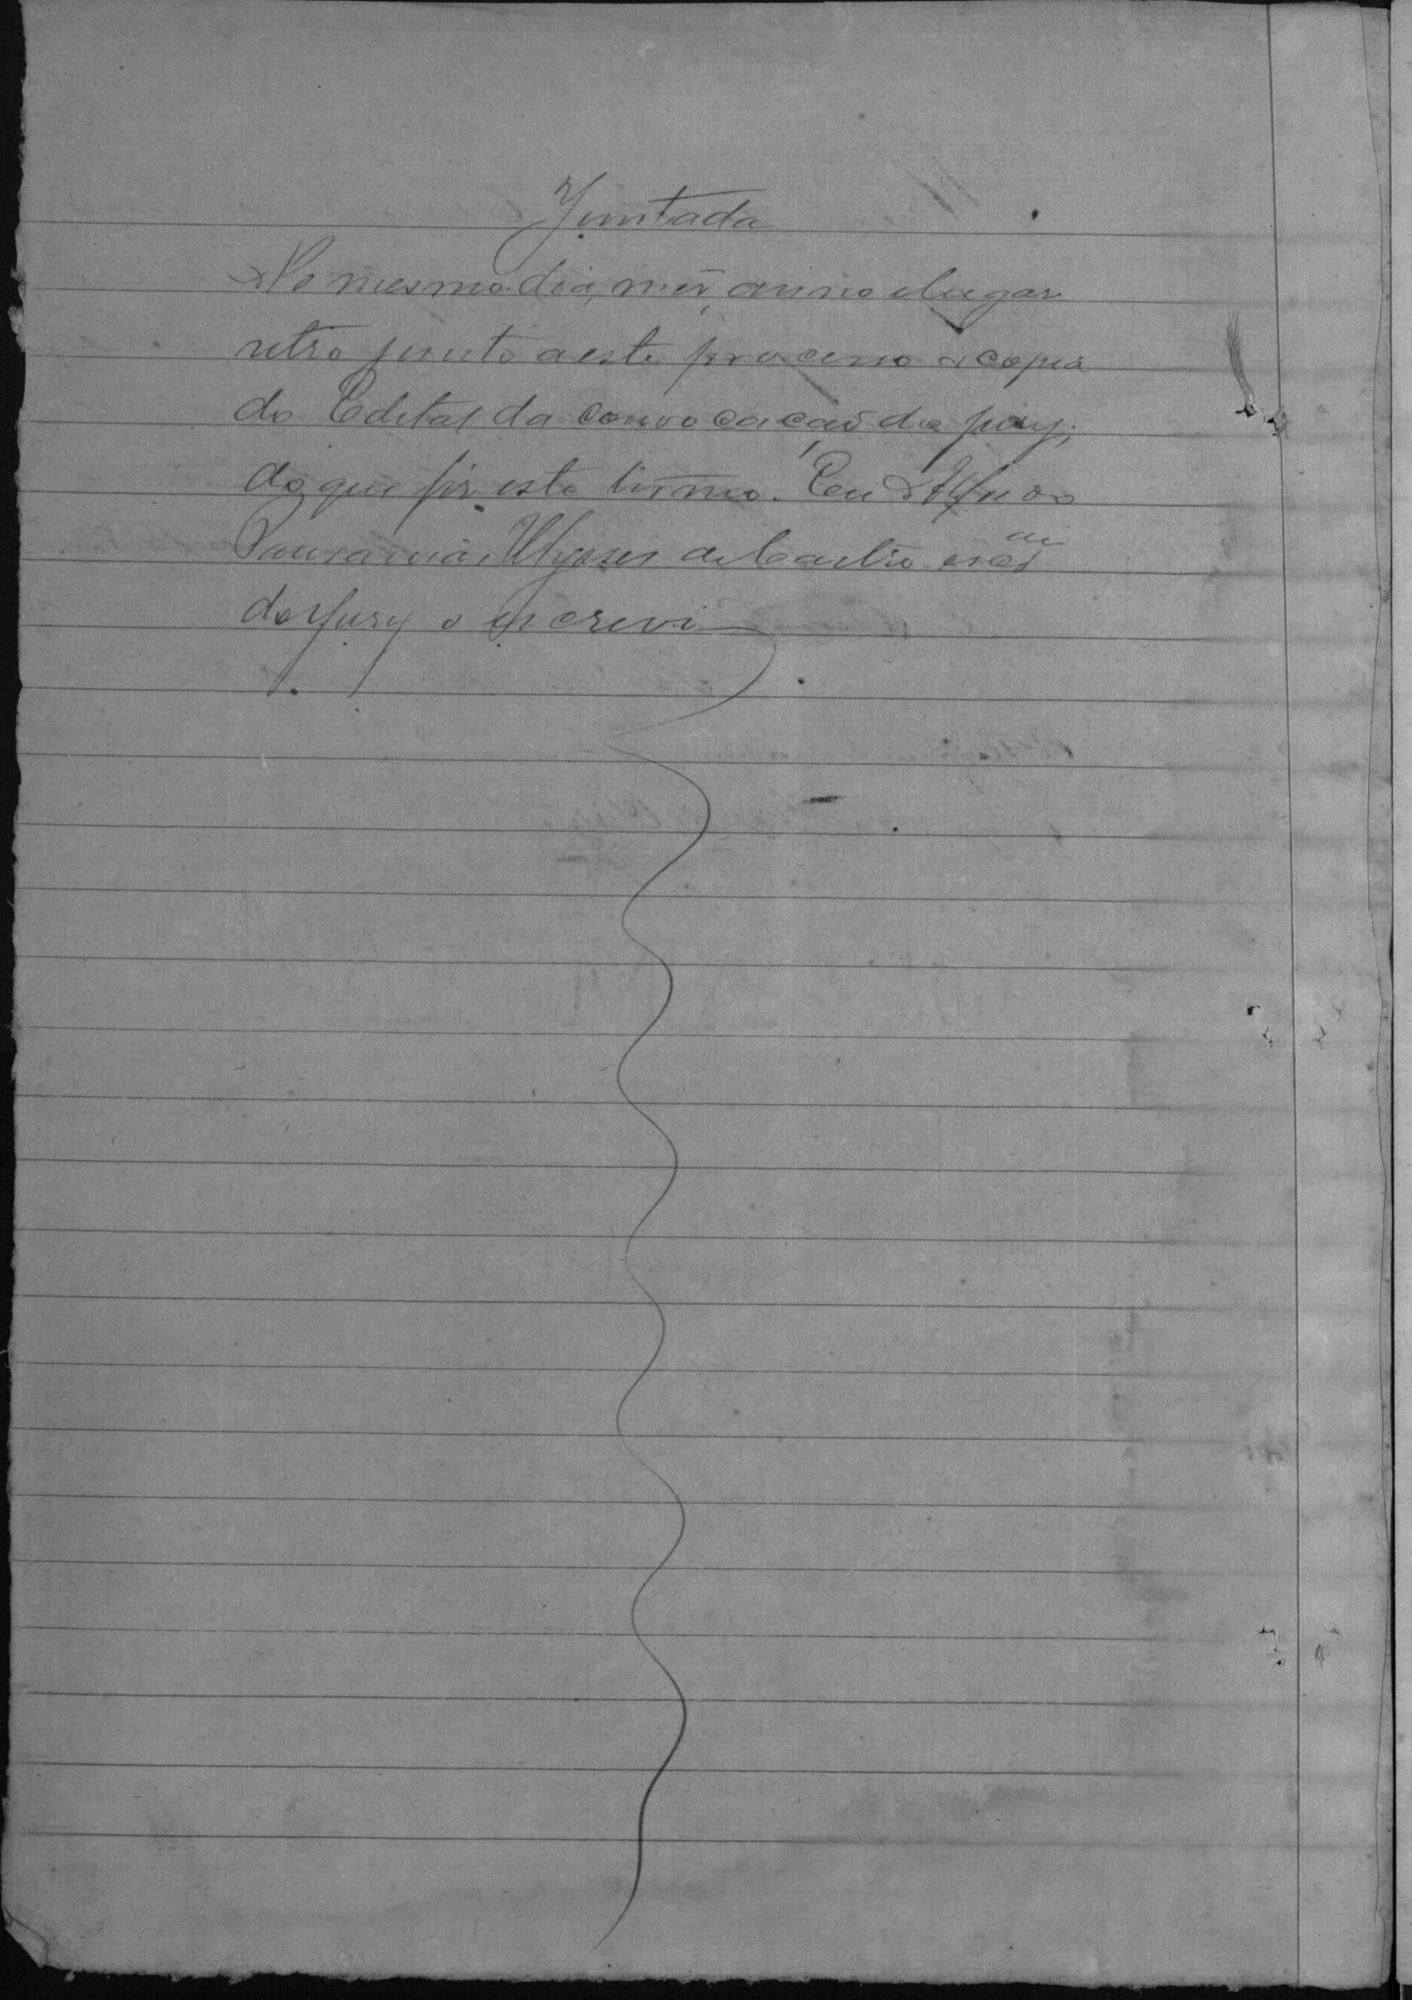 Juntada
No mesmo dia, mez, anno e lugar
retro junto a este processo a copia
do Edital da convocação do jury,
do que fiz este termo. Eu
Ulysses de Castro escam
do Jury o escrevi